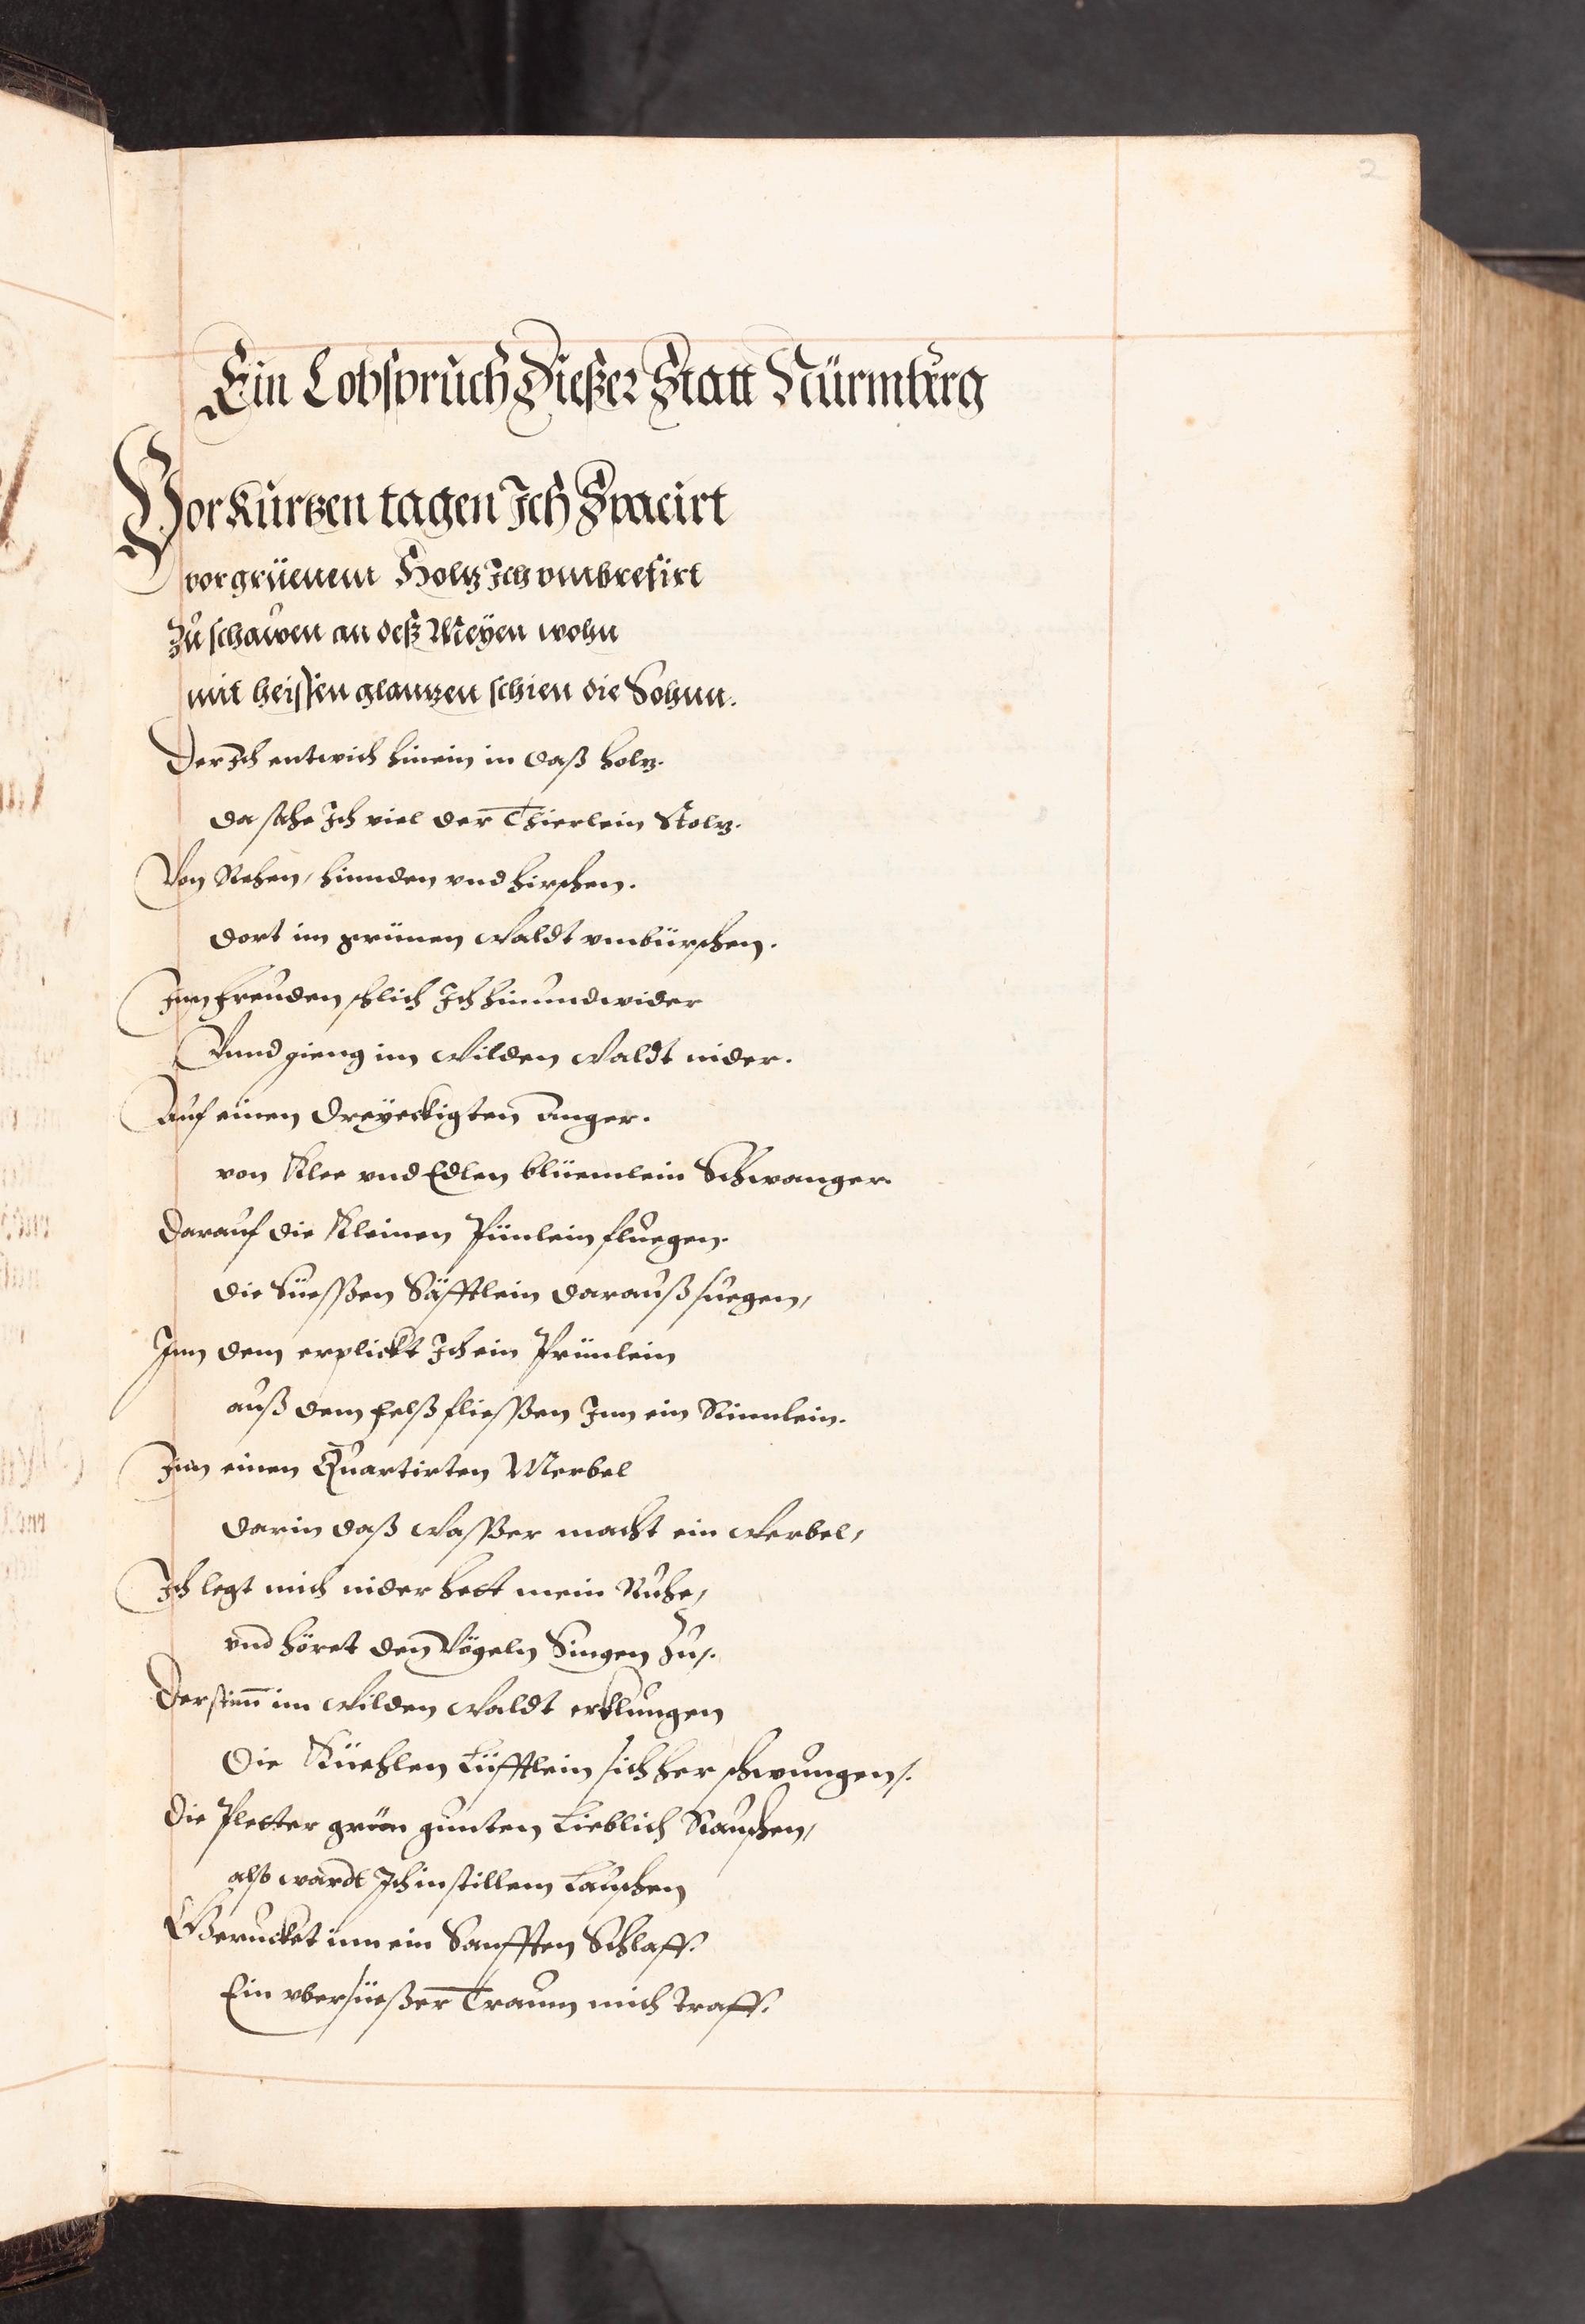 2
Ein Lobspruch Dießer Statt Nürmberg
Vor Kurtzen tagen Ich Spacirt
vor grüenem Holtz Ich vmbrefirt
Zu schawen an deß Meyen wohn
mit heissen glantzen schien die Sohnn.
Der Ich entwich hinein in daß holtz.
da sahe Ich viel der Thierlein Stoltz.
Von Rehen, hinnden vnd hirschen.
dort im grünen Waldt vmbürschen.
Inn freuden schlich Ich hin und wider
Vnnd gieng im Wilden Waldt nider.
Auf einen dreyeckigten Anger.
von Klee vnd Edlen blüemlein Schwanger.
Darauf die Kleinen Pünlein fluegen.
die Süessen Säfftlein darauß suegen,
Inn dem erplickt Ich ein Prünlein
auß dem felß fliessen Inn ein Rinnlein.
Inn einen Quartirten Merbel
darin daß Wasser macht ein Werbel,
Ich legt mich nider hett mein Ruhe,
vnd höret den Vögeln Singen Zu.
Der stim̄ im Wilden Waldt erklungen
Die Küehlen Lüfftlein sich her schwungen.
Die Pletter grön gunten Lieblich Rauschen,
also wardt Ich in stillem Lauschen
Gerucket inn ein Sanfften Schlaff.
Ein vbersüeßer Traum mich traff.